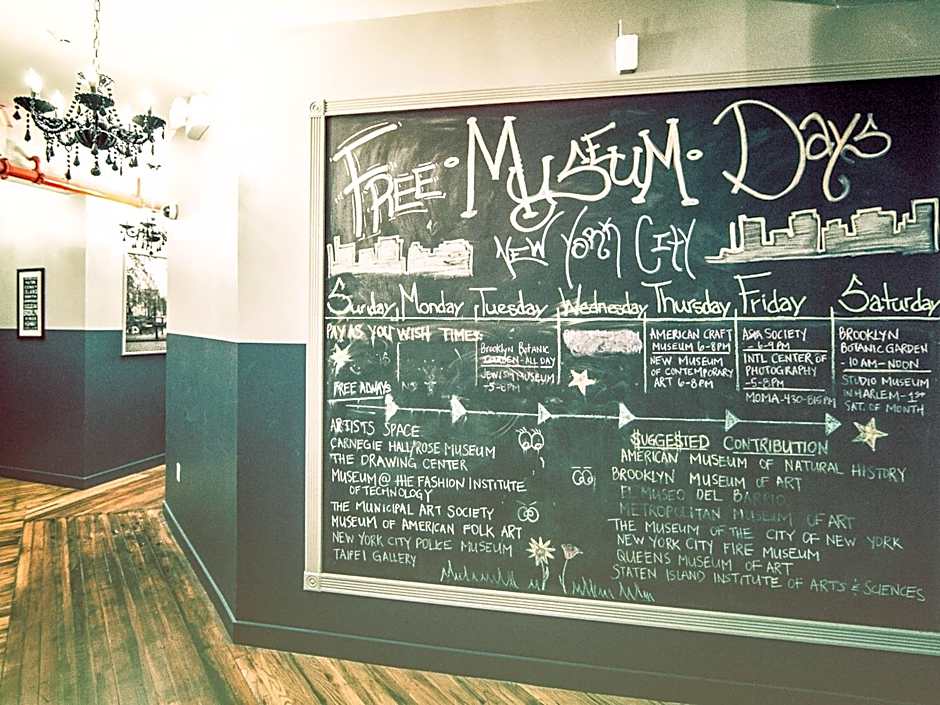 FREE · MUSEUM · DAYS
NEW YORK CITY
Sunday Monday Tuesday Wednesday Thursday Friday Saturday
PAY AS YOU WISH TIMES
BROOKLYN BOTANIC
GARDEN-ALL DAY
JEWISH MUSEUM
-5-8PM
AMERICAN CRAFT
MUSEUM 6-8PM
NEW MUSEUM
OF CONTEMPORARY
ART 6-8PM
ASIA SOCIETY
-6-9PM
INTL CENTER OF
PHOTOGRAPHY
-5-8PM
MOMA-430-815PM
BROOKLYN
BOTANIC GARDEN
-10AM-NOON
STUDIO MUSEUM
IN HARLEM-1ST
SAT. OF MONTH
FREE ALWAYS
ARTISTS SPACE
CARNEGIE HALL/ROSE MUSEUM
THE DRAWING CENTER
MUSEUM @ THE FASHION INSTITUTE
OF TECHNOLOGY
THE MUNICIPAL ART SOCIETY
MUSEUM OF AMERICAN FOLK ART
NEW YORK CITY POLICE MUSEUM
TAIPEI GALLERY
$UGGE$TED CONTRIBUTION
AMERICAN MUSEUM OF NATURAL HISTORY
BROOKLYN MUSEUM OF ART
EL MUSEO DEL BARRIO
METROPOLITAN MUSEUM OF ART
THE MUSEUM OF THE CITY OF NEW YORK
NEW YORK CITY FIRE MUSEUM
QUEENS MUSEUM OF ART
STATEN ISLAND INSTITUTE OF ARTS & SCIENCES